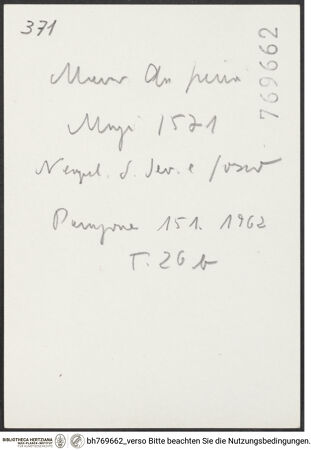 371
769662
Magi 1571
Neapel. S. Sev. e Sosio
Paragone 151. 1962
T. 26 b
BIBLIOTHECA HERTZIANA
MAX-PLANCK-INSTITUT
FÜR KUNSTGESCHICHTE
bh769662_verso Bitte beachten Sie die Nutzungsbedingungen.